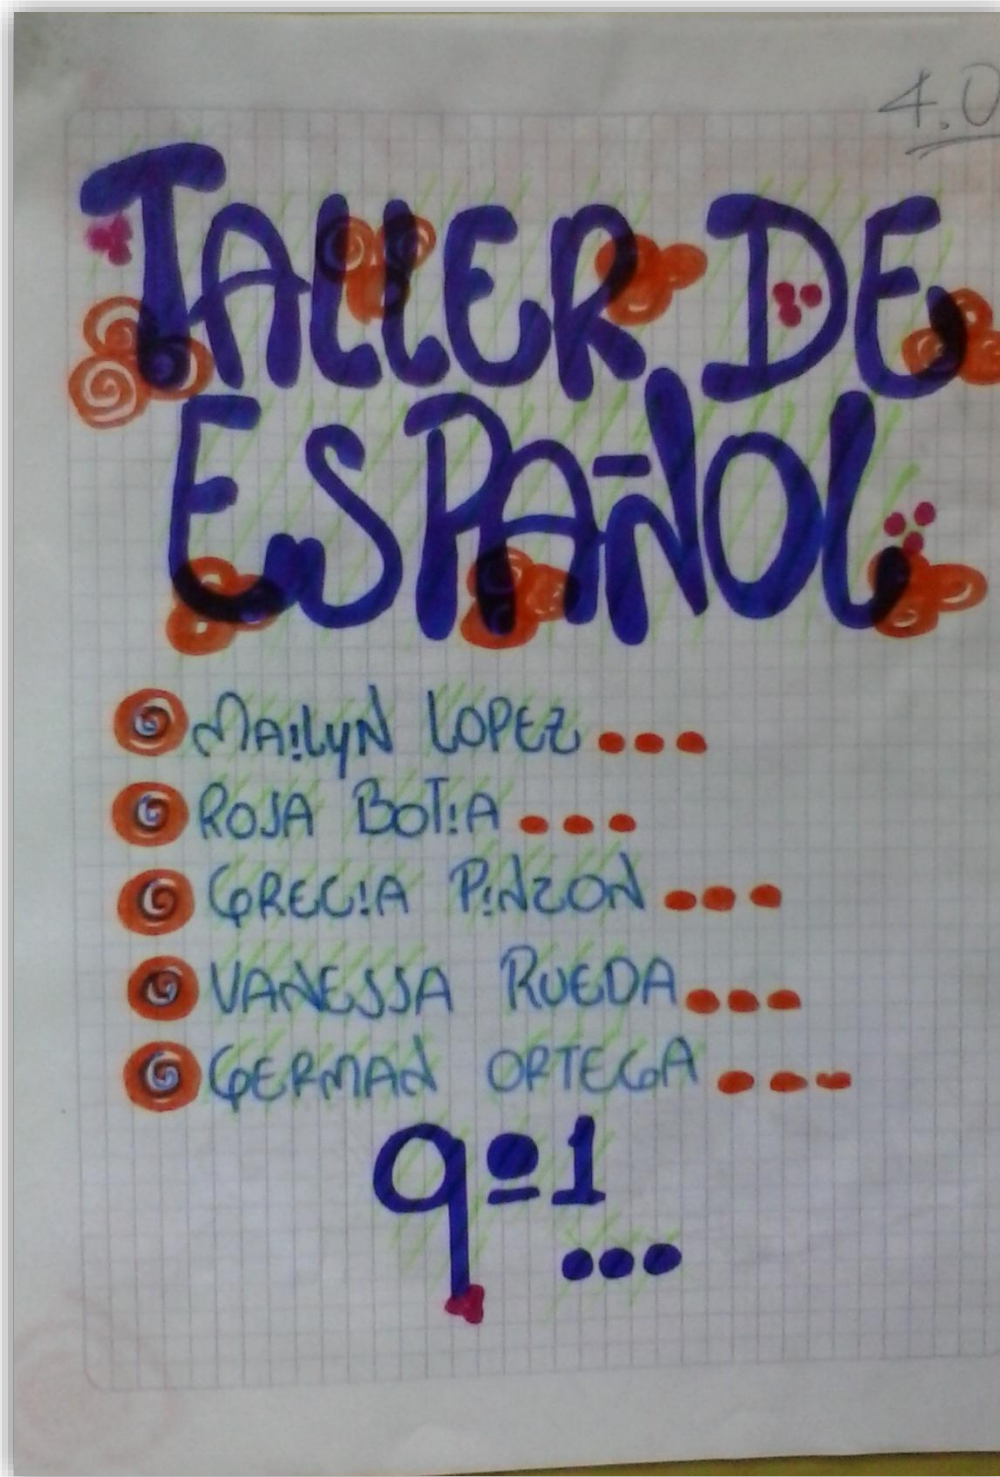 4.0
TALLER DE
ESPAÑOL
MAiLYN LOPEZ...
ROSA BOTiA...
GRECiA PiNZON...
VANESSA RUEDA...
GERMAN ORTEGA...
9º1...